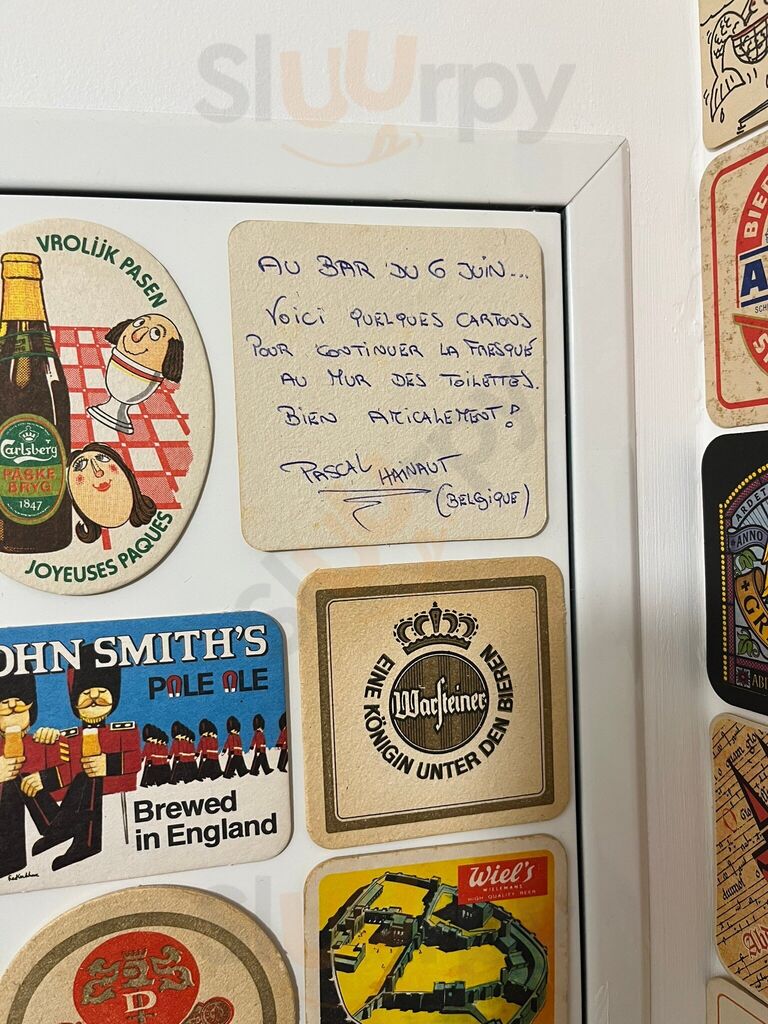 Sluurpy
VROLIJK PASEN
Carlsberg
PÅSKE
BRYG
1847
JOYEUSES PAQUES
AU BAR DU 6 JUIN...
VOICI QUELQUES CARTONS
POUR CONTINUER LA FRESQUE
AU MUR DES TOILETTES.
BIEN AMICALEMENT!
PASCAL HAINAUT
(BELGIQUE)
OHN SMITH'S
POLE OLE
Brewed
in England
EINE KÖNIGIN UNTER DEN BIEREN
Warsteiner
Wiel's
WIELEMANS
HIGH QUALITY BEER
P
BIER
A
ARDE
ANNO
GR
ABI